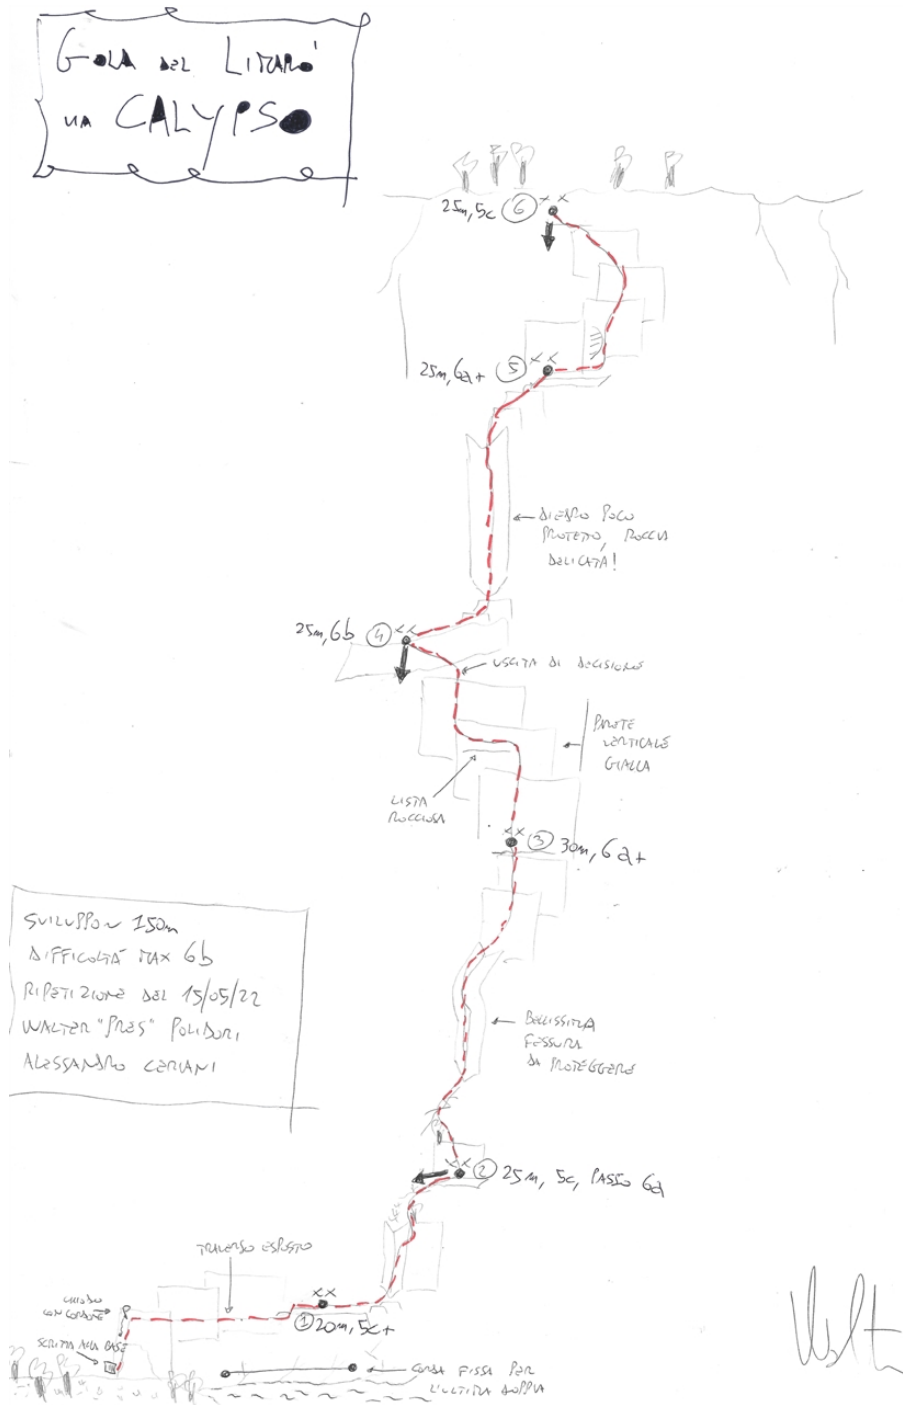 GOLA DEL LIMARÓ
VIA CALYPSO
25m, 5c 6
25m, 6a+ 5
DIEDRO POCO
PROTETTO, ROCCIA
DELICATA!
25m, 6b 4
USCITA DI DECISIONE
PARETE
VERTICALE
GIALLA
LISTA
ROCCIOSA
3 30m, 6a+
SVILUPPO ~ 150m
DIFFICOLTÀ MAX 6b
RIPETIZIONE DEL 15/05/22
WALTER "PRES" POLIDORI
ALESSANDRO CERIANI
BELLISSIMA
FESSURA
DA PROTEGGERE
2 25m, 5c, PASSO 6a
TRAVERSO ESPOSTO
CHIODO
CON CORDONE
1 20m, 5c+
SCRITTA ALLA BASE
CORDA FISSA PER
L'ULTIMA DOPPIA
Walt